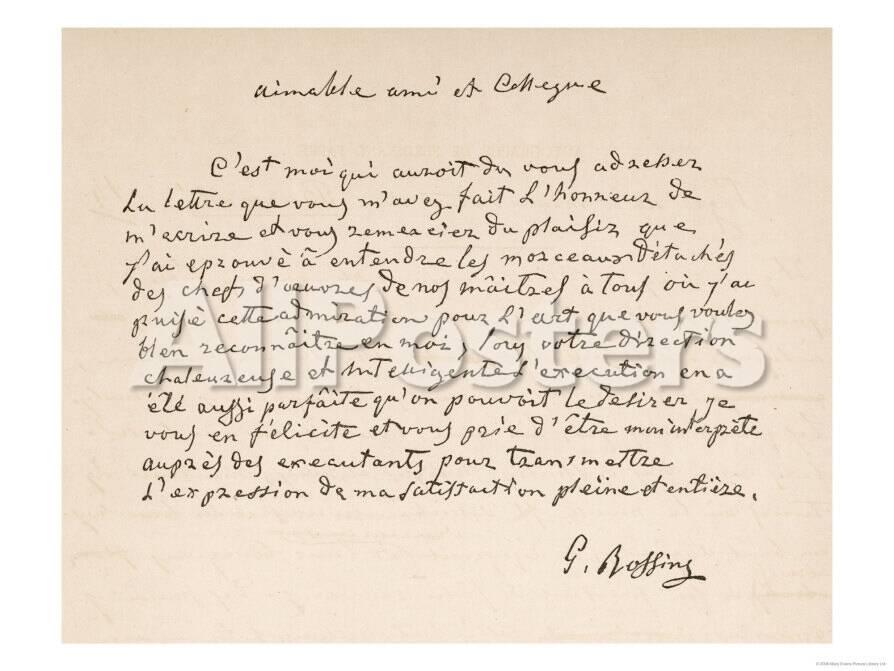 aimable ami et Collegue
C'est moi qui auroit du vous adresser
La lettre que vous m'avez fait L'honneur de
m'ecrire et vous remercier du plaisir que
j'ai eprouvè â entendre les morceaux Détachés
des chefs d'oeuvres de nos mâitres à tous où j'ai
puisè cette admiration pour L'art que vous voulez
bien reconnâitre en moi, sous votre direction
chaleureuse et intelligente L'execution en a
été aussi parfâite qu'on pouvoit le desirer je
vous en félicite et vous prie d'être mon interprète
auprès des executants pour transmettre
L'expression de ma satisfaction pleine et entière.
G. Rossini
AllPosters
© 2006 Mary Evans Picture Library Ltd